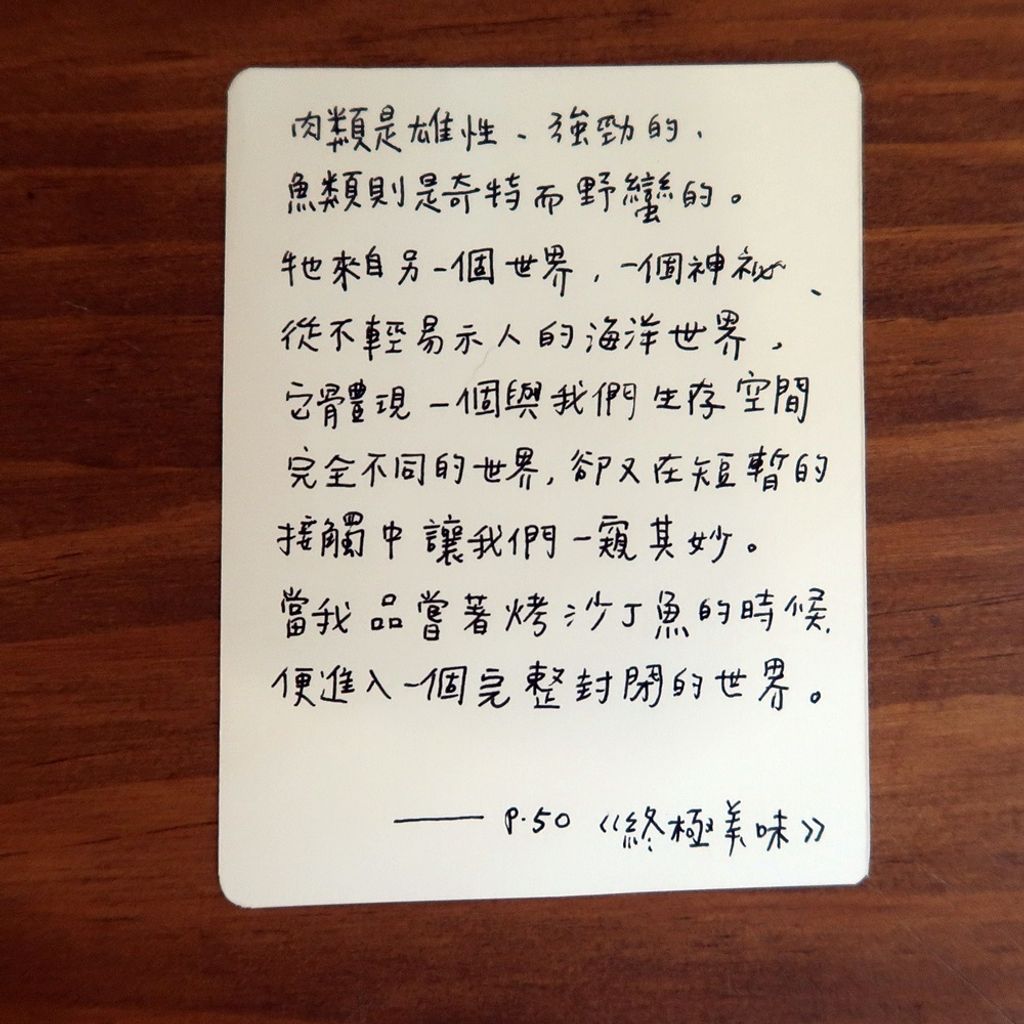 肉類是雄性、強勁的，
魚類則是奇特而野蠻的。
牠來自另一個世界，一個神祕、
從不輕易示人的海洋世界，
它體現一個與我們生存空間
完全不同的世界，卻又在短暫的
接觸中讓我們一窺其妙。
當我品嘗著烤沙丁魚的時候，
便進入一個完整封閉的世界。
—— P.50《終極美味》